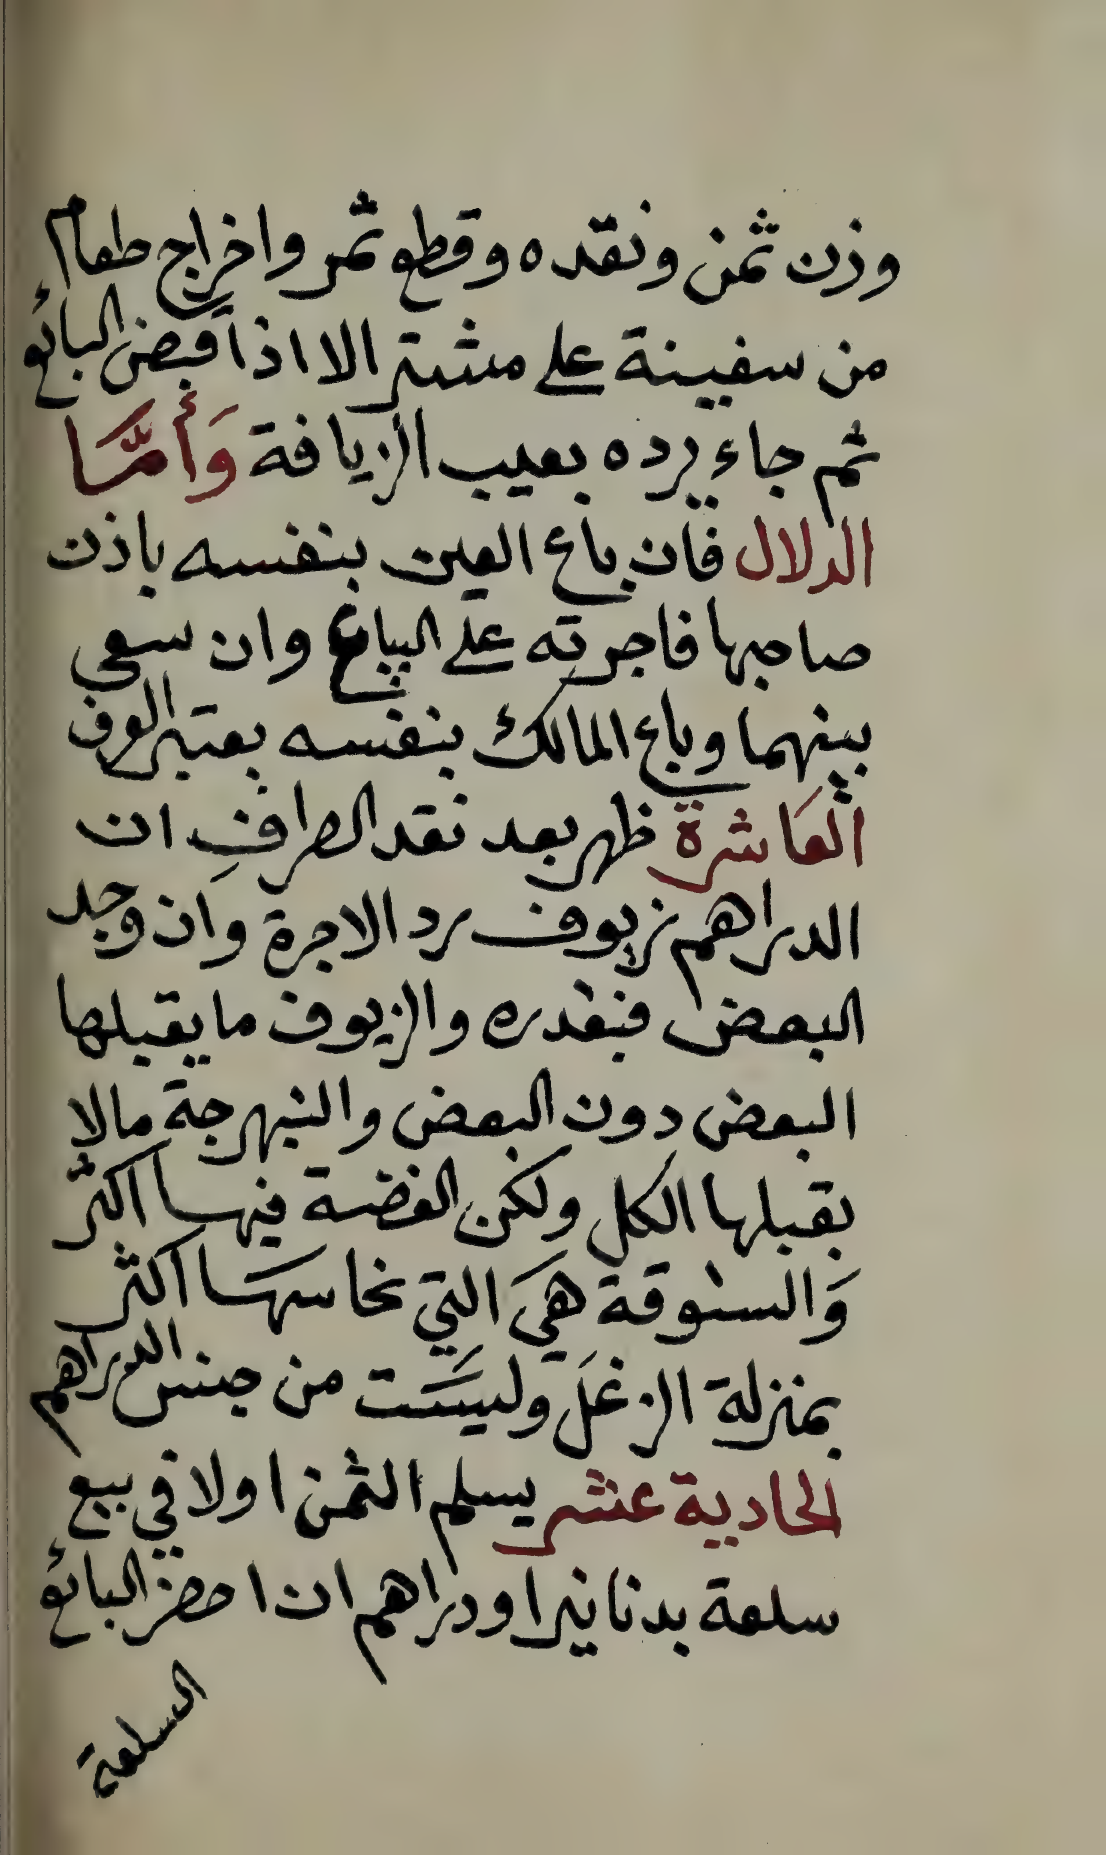 وزن ثمن ونقده وقطع ثمر واخراج طعام
من سفينة على مشتر الا اذا قبض البائع
ثم جاء يرده بعيب الزيافة وَأَمَّا
الدلال فان باع العين بنفسه باذن
صاحبها فاجرته على البياع وان سعى
بينهما وباع المالك بنفسه يعتبر العرف
العَاشرة ظهر بعد نقد الصراف ان
الدراهم زيوف رد الاجرة وان وجد
البعض فبقدره والزيوف ما يقبلها
البعض دون البعض والنبهرجة مالا
يقبلها الكل ولكن الفضة فيها اكثر
وَالستوقة هيَ التي نحاسهَا اكثر
بمنزلة الزغَل وليسَت من جنس الدراهم
الحادية عشر يسلم الثمن اولا في بيع
سلعة بدنانير اودراهم ان احضر البائع
السلعة